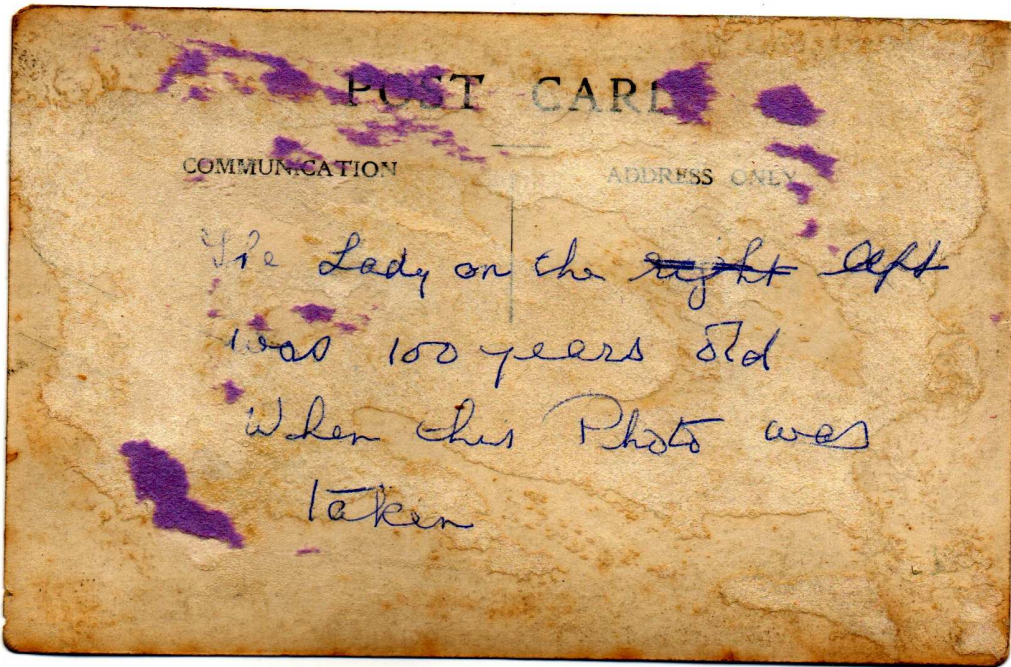 POST CARD
COMMUNICATION
ADDRESS ONLY
The Lady on the right left
was 100 years old
When this Photo was
taken